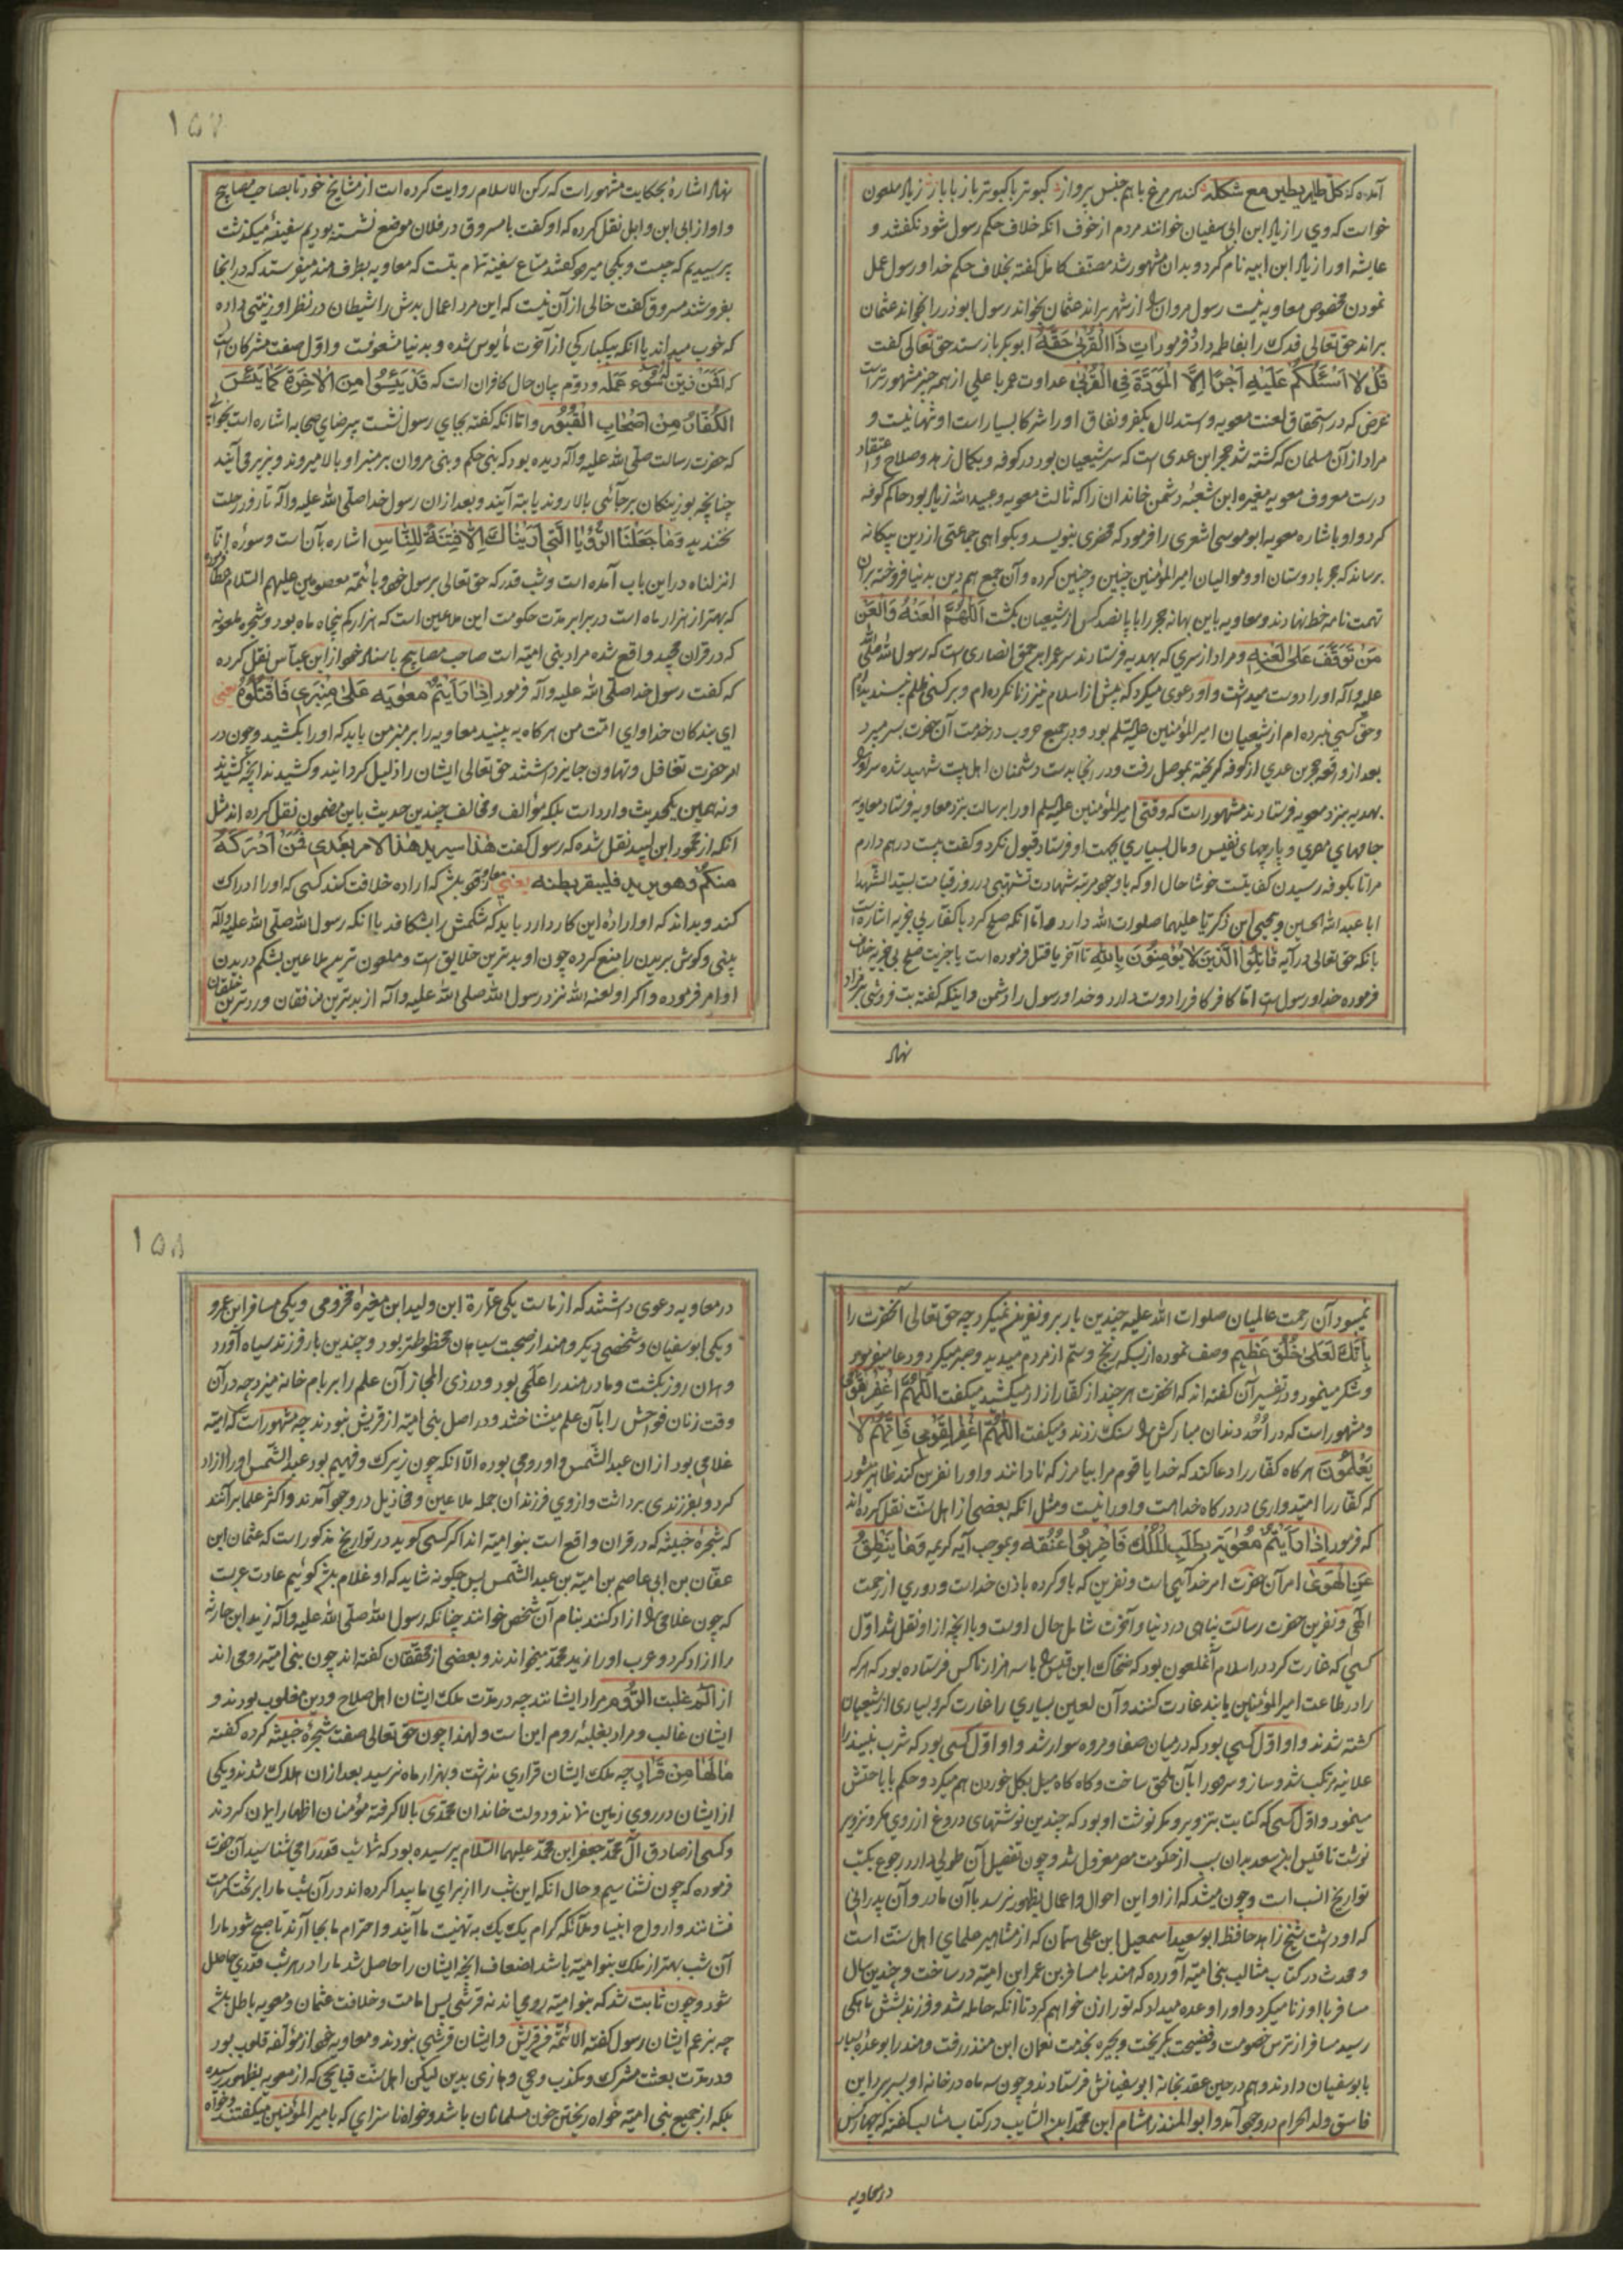 آمده که کل طایر یطیر مع شکله کند هر مرغ با هم جنس پرواز کبوتر با کبوتر باز با باز زیاد ملعون
خواست که وی را زیاد ابن ابی سفیان خوانند مردم از خوف انکه خلاف حکم رسول شود نکفتند و
عایشه او را زیاد ابن ابیه نام کرد و بدان مشهور شد مصنف کامل کفته بخلاف حکم خدا و رسول عمل
نمودن مخصوص معاویه نیست رسول مروان را از شهر براند عثمان بخواند رسول ابوذر را بخواند عثمان
براند حق تعالی فدک را بفاطمه داد و فرمود اٰتِ ذَا الْقُرْبٰی حَقَّهُ ابوبکر باز ستد حق تعالی کفت
قُل لا اَسْئَلُکُمْ عَلَیْهِ اَجْرًا اِلَّا الْمَوَدَّةَ فِی الْقُرْبٰی عداوت عمر با علی از همه چیز مشهورتر است
غرض که در استحقاق لعنت معویه و استدلال بکفر و نفاق او را شرکا بسیار است او تنها نیست و
مراد از آن مسلمان که کشته شد حجر ابن عدی است که سر شیعیان بود در کوفه و بکمال زهد و صلاح و اعتقاد
درست معروف معویه مغیره ابن شعبه دشمن خاندان را که ثالث معویه و عبید الله زیاد بود حاکم کوفه
کرد و او باشاره معویه ابو موسی اشعری را فرمود که محضری بنویسد و بکواهی جماعتی از دین بیکانه
برساند که حجر با دوستان او و موالیان امیر المؤمنین چنین و چنین کرده و آن جمع هم دین بدنیا فروخته بر آن
تهمت نامه خط نهادند و معاویه باین بهانه حجر را با پانصد کس از شیعیان بکشت اَللّٰهُمَّ الْعَنْهُ وَالْعَنْ
مَنْ تَوَقَّفَ عَلٰی لَعْنِهِ و مراد از سری که بهدیه فرستادند سر عمرو ابن حمق انصاری است که رسول الله صلی الله
علیه وآله او را دوست میداشت و او دعوی میکرد که پیش از اسلام نیز زنا نکرده‌ام و بر کسی ظلم نپسندیده‌ام
و حق کسی نبرده‌ام از شیعیان امیر المؤمنین علیه السلام بود و در جمیع حروب در خدمت آن حضرت بسر میبرد
بعد از واقعه حجر بن عدی از کوفه کریخته بموصل رفت و در انجا بدست دشمنان اهل بیت شهید شده سر او را
بهدیه بنزد معویه فرستادند مشهور است که وقتی امیر المؤمنین علیه السلم او را برسالت بنزد معاویه فرستاد معاویه
جامهای مصری و پارچهای نفیس و مال بسیاری بجهت او فرستاد قبول نکرد و کفت بیست درهم دارم
مرا تا بکوفه رسیدن کفایتست خوشا حال او که با وجود مرتبه شهادت تشبهی در روز قیامت بسید الشهدا
ابا عبد الله الحسین و یحیی ابن زکریا علیهما صلوات الله دارد و اما انکه صلح کرد با کفار بی جزیه اشاره است
بانکه حق تعالی در آیه قَاتِلُوا الَّذینَ لا یُؤْمِنُونَ بِاللهِ تا آخر یا قتل فرموده است یا جزیت صلح بی جزیه خلاف
فرموده خدا و رسول است اما کافر کافر را دوست دارد و خدا و رسول را دشمن و اینکه کفته بت فروشی
نهاد
۱۵۷
نهاد اشاره بحکایت مشهور است که رکن الاسلام روایت کرده است از مشایخ خود تا بصاحب مصابیح
و او از ابی ابن وایل نقل کرده که او کفت با مسروق در فلان موضع نشسته بودیم سفینه میکذشت
پرسیدیم که چیست و بکجا میرود کفتند متاع سفینه تمام بتست که معاویه بطرف هند میفرستد که در انجا
بفروشند مسروق کفت خالی از آن نیست که این مرد اعمال بدش را شیطان در نظر او زینتی داده
که خوب میداند یا انکه بیکبارکی از آخرت مأیوس شده و بدنیا مشعوفست و اول صفت مشرکان است
که اَفَمَنْ زُیِّنَ لَهُ سُوءُ عَمَلِه و دوّم بیان حال کافران است که قَدْ یَئِسُوا مِنَ الْاٰخِرَةِ کَمَا یَئِسَ
الْکُفَّارُ مِنْ اَصْحَابِ الْقُبُورِ و اما انکه کفته بجای رسول نشست بیرضای صحابه اشاره است بخوابی
که حضرت رسالت صلی الله علیه وآله دیده بود که بنی حکم و بنی مروان بر منبر او بالا میروند و بزیر می آیند
چنانچه بوزینکان بر جائی بالا روند یا بته آیند و بعد از ان رسول خدا صلی الله علیه وآله تا روز رحلت
نخندید وَمٰا جَعَلْنَا الرُّؤْیَا الَّتِی اَرَیْنَاکَ اِلَّا فِتْنَةً لِلنَّاسِ اشاره بآن است و سوره انا
انزلناه در این باب آمده است و شب قدر که حق تعالی برسول خود و بائمه معصومین علیهم السلام عطا فرموده
که بهتر از هزار ماه است در برابر مدت حکومت این ملاعین است که هزار کم پنجاه ماه بود و شجره ملعونه
که در قران مجید واقع شده مراد بنی امیه است صاحب مصابیح باسناد خود از ابن عباس نقل کرده
که کفت رسول خدا صلی الله علیه وآله فرمود اِذٰا رَاَیْتُمْ مُعٰویَه عَلٰی مِنْبَری فَاقْتُلُوهُ یعنی
ای بندکان خدا و ای امّت من هرکاه به بینید معاویه را بر منبر من باید که او را بکشید و چون در
امر حضرت تغافل و تهاون جایز داشتند حق تعالی ایشان را ذلیل کردانید و کشیدند انچه کشیدند
و نه همین یکحدیث وارد است بلکه مؤالف و مخالف چندین حدیث باین مضمون نقل کرده‌اند مثل
انکه از محمود ابن لبید نقل شده که رسول کفت هٰذا سیرید هٰذا الامر بعدی فمن ادرکه
منکم وهو یرید فلیبقر بطنه یعنی معاویه زود بشد که اراده خلافت کند کسی که او را ادراک
کند و بداند که او اراده این کار دارد باید که شکمش را بشکافد با انکه رسول الله صلی الله علیه وآله
بینی و کوش بریدن را منع کرده چون او بدترین خلایق است و ملعون‌ترین ملاعین بشکم دریدن
او امر فرموده و اکر او لعنه الله نزد رسول الله صلی الله علیه وآله از بدترین منافقان و ردترین
نمیبود آن رحمت عالمیان صلوات الله علیه چندین بار برو نفرین نمیکرد چه حق تعالی آنحضرت را
بِاَنَّکَ لَعَلٰی خُلُقٍ عَظیمٍ وصف نموده از بسکه رنج و ستم از مردم میدید و صبر میکرد و دعا میفرمود
و شکر مینمود و در تفسیر آن کفته‌اند که انحضرت هر چند از کفار ازار میکشید میکفت اَللّٰهُمَّ اغْفِرْ لِقَوْمی
و مشهور است که در اُحُد دندان مبارکش را بسنک زدند و میکفت اَللّٰهُمَّ اغْفِرْ لِقَوْمی فَاِنَّهُمْ لا
یَعْلَمُونَ هرکاه کفار را دعا کند که خدایا قوم مرا بیامرز که نادانند و او را نفرین کند ظاهر میشود
که کفار را امیدواری در درکاه خدا هست و او را نیست و مثل انکه بعضی از اهل سنت نقل کرده‌اند
که فرمود اِذٰا رَاَیْتُمْ مُعٰویَةَ یَطْلُبُ الْمُلْکَ فَاضْرِبُوا عُنُقَه و بموجب آیه کریمه وَمٰا یَنْطِقُ
عَنِ الْهَوٰی امر آن حضرت امر خدا آلهی است و نفرین که باو کرده باذن خداست و دوری از رحمت
الهی و نفرین حضرت رسالت پناهی در دنیا و آخرت شامل حال اوست و بآنچه از او نقل شد اول
کسی که غارت کرد در اسلام آنملعون بود که ضحاک ابن قیس را با سه هزار ناکس فرستاده بود که هر که
را در طاعت امیر المؤمنین یابند غارت کنند و آن لعین بسیاری را غارت کرد و بسیاری از شیعیان
کشته شدند و او اوّل کسی بود که در میان صفا و مروه سوار شد و او اوّل کسی بود که شرب نبیند را
علانیه مرتکب شد و ساز و سرود را بآن ملحق ساخت و کاه کاه میل بکل خوردن هم میکرد و حکم باباحتش
مینمود و اوّل کسی که کتابت بتزویر و مکر نوشت او بود که چندین نوشتهای دروغ از روی مکر و تزویر
نوشت تا قیس ابن سعد بدان سبب از حکومت مصر معزول شد و چون تفصیل آن طولی دارد رجوع بکتب
تواریخ انسب است و چون میشد که از او این احوال و اعمال بظهور نرسد با آن مادر و آن پدرانی
که او داشت شیخ زاهد حافظ ابو سعید اسمعیل ابن علی سمان که از مشاهیر علمای اهل سنت است
و محدث در کتاب مثالب بنی امیه آورده که هند با مسافر بن عمرو ابن امیه در ساخت و چندین سال
مسافر با او زنا میکرد و او را وعده میداد که تو را زن خواهم کرد تا انکه حامله شد و فرزند شش ماهکی
رسید مسافر از ترس خصومت و فضیحت بکریخت و بحیره بخدمت نعمان ابن منذر رفت و هند را بوعده بسیار
بابو سفیان دادند و هم در حین عقد بخانه ابو سفیانش فرستادند و چون سه ماه در خانه او بسر برد این
فاسق ولد الحرام در وجود آمد و ابو المنذر هشام ابن محمد ابن السایب در کتاب مثالب کفته که چهار کس
در معاویه
۱۵۸
در معاویه دعوی داشتند که از ماست یکی عمارة ابن ولید ابن مغیره مخزومی و یکی مسافر ابن عمرو
و یکی ابو سفیان و شخصی دیکر و هند از صحبت سیاهان محظوظتر بود و چندین بار فرزند سیاه آورد
و همان روز بکشت و مادر هند را علمی بود و در ذی المجاز آن علم را بر بام خانه میزد چه در آن
وقت زنان فواحش را بآن علم میشناختند و در اصل بنی امیه از قریش نبودند چه مشهور است که امیه
غلامی بود از ان عبد الشمس و او رومی بوده الا انکه چون زیرک و فهیم بود عبد الشمس او را ازاد
کرد و بفرزندی برداشت و ازوی فرزندان جمله ملاعین و مخاذیل در وجود آمدند و اکثر علما بر آنند
که شجره خبیثه که در قران واقع است بنو امیه اند اکر کسی کوید در تواریخ مذکور است که عثمان ابن
عفان بن ابی عاصم بن امیه بن عبد الشمس پس چکونه شاید که او غلام باشد کوئیم عادت عربست
که چون غلامی را ازاد کنند بنام آن شخص خوانند چنانکه رسول الله صلی الله علیه وآله زید ابن حارثه
را ازاد کرد و عرب او را زید محمد میخواندند و بعضی از محققان کفته‌اند چون بنی امیه رومی اند
از الم غلبت الروم مراد ایشانند چه در مدت ملک ایشان اهل صلاح و دین مغلوب بودند و
ایشان غالب و مراد بغلبه روم این است و لهذا چون حق تعالی صفت شجره خبیثه کرده کفته
مٰا لَهٰا مِنْ قَرٰارٍ چه ملک ایشان قراری نداشت و بهزار ماه نرسید بعد از ان هلاک شدند و یکی
از ایشان در روی زمین نماند و دولت خاندان محمدی بالا کرفته مؤمنان اظهار ایمان کردند
و کسی از صادق آل محمد جعفر ابن محمد علیهما السلام پرسیده بود که شما شب قدر را می‌شناسید آن حضرت
فرموده که چون نشناسیم و حال انکه این شب را از برای ما پیدا کرده‌اند در آن شب ما را بر تخت کرامت
نشانند و ارواح انبیا و ملائکه کرام یک یک به تهنیت ما آیند و احترام ما بجا آرند تا صبح شود ما را
آن شب بهتر از ملک بنو امیه باشد اضعاف انچه ایشان را حاصل شد ما را در هر شب قدری حاصل
شود و چون ثابت شد که بنو امیه رومی اند نه قرشی پس امامت و خلافت عثمان و معویه باطل باشد
چه بزعم ایشان رسول کفته الائمة من قریش و ایشان قرشی نبودند و معاویه خود از مؤلفه قلوب بود
و در مدت بعثت مشرک و مکذب وحی و هازی بدین لیکن اهل سنت قبایحی که از معویه بظهور رسیده
بلکه از جمیع بنی امیه خواه ریختن خون مسلمانان باشد و خواه ناسزای که بامیر المؤمنین میکفتند و خواه